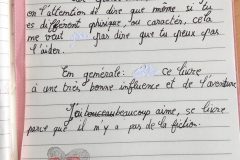 en l'attention de dire que même si tu
es différent phisique, ou caractér, cela
ne veut pas dire que tu peux pas
l'aider.
En générale: ce livre
à une trés bonne influence et de l'aventure
J'ai beaucoup aimé, se livre
parce que il n'y a pas de fiction.